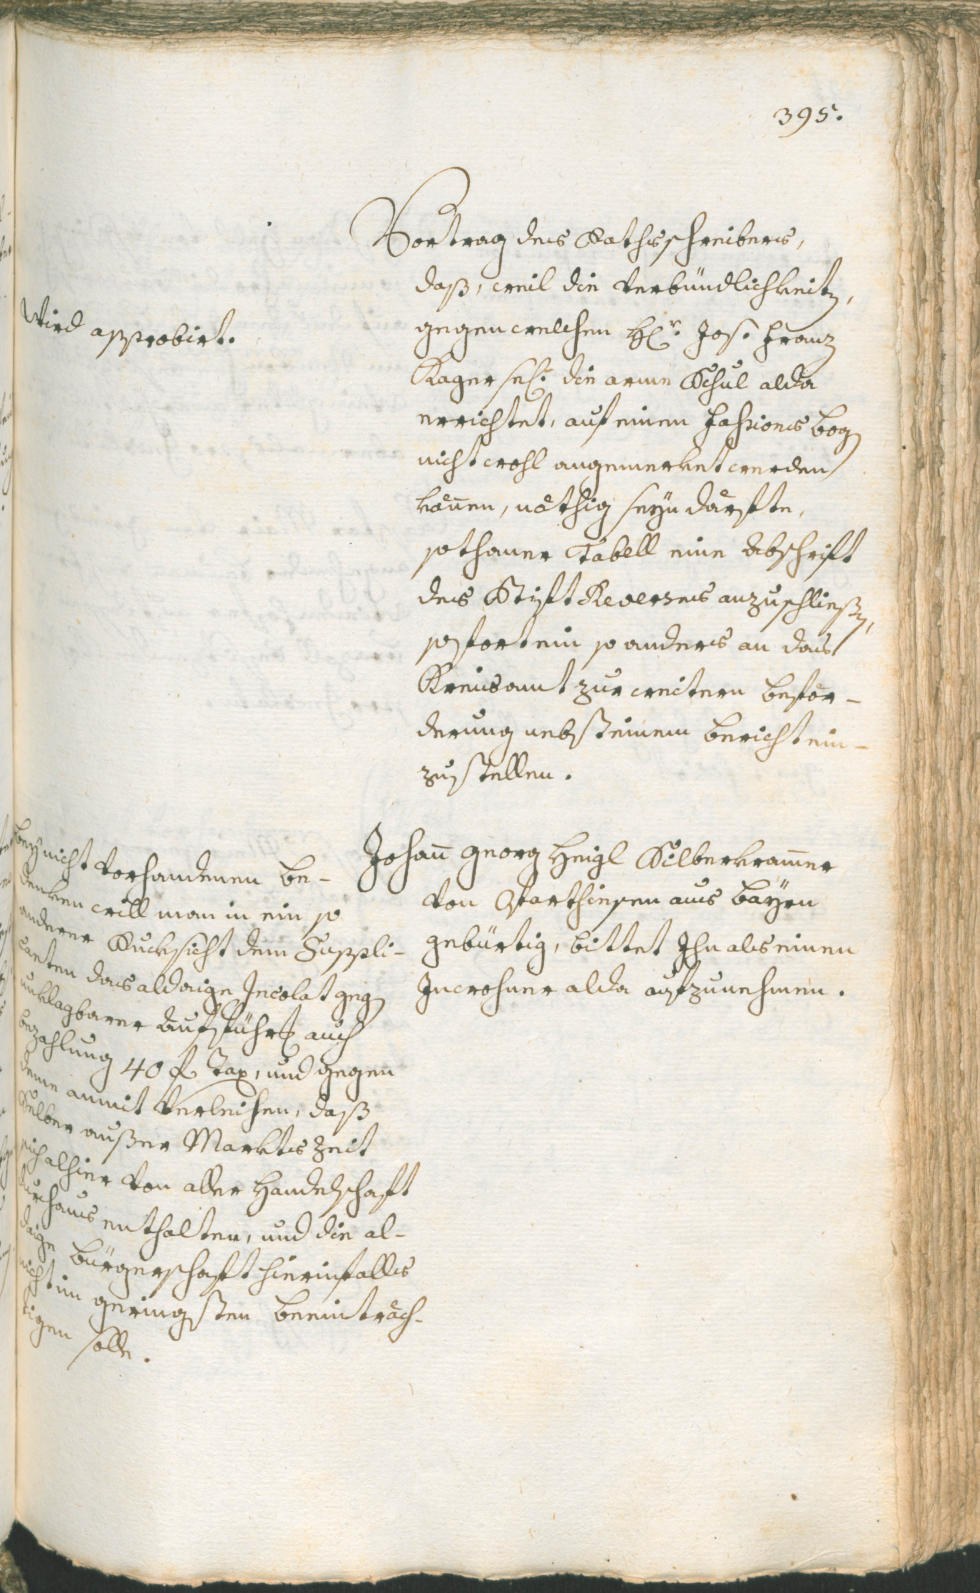 395.
Vortrag des Rathsschreibers,
daß, weil die Verbündlichkeit,
gegen welchen H: Jos. Franz
Kager sel: die arme Schul alda
errichtet, auf einem Fassions bog
nicht wohl angemerket werden
können, nöthig seyn därfte,
sothaner Tabell eine Abschrift
des Stift Reverses anzuschließen,
sofort ein so anders an das
Kreisamt zur weitern beför-
derung nebst einem bericht ein-
zustellen.
Wird approbirt.
Johann Georg Heigl Silberkramer
von aus bayrn
gebürtig, bittet Ihn als einen
Inwohner alda aufzunehmen.
bey nicht vorhandenen be-
denken will man in ein so
anderer Rucksicht dem Suppli-
canten das aldaige Incolat geg
unklagbarer Aufführung auch
bezahlung 40 f Tax, und gegen
deme anmit verleihen, daß
Selber außer Markts Zeit
sich alhier von aller Handelschaft
durchaus enthalten, und die al-
daige bürgerschaft hierinfalls
nicht im geringsten beeinträch-
tigen solle.